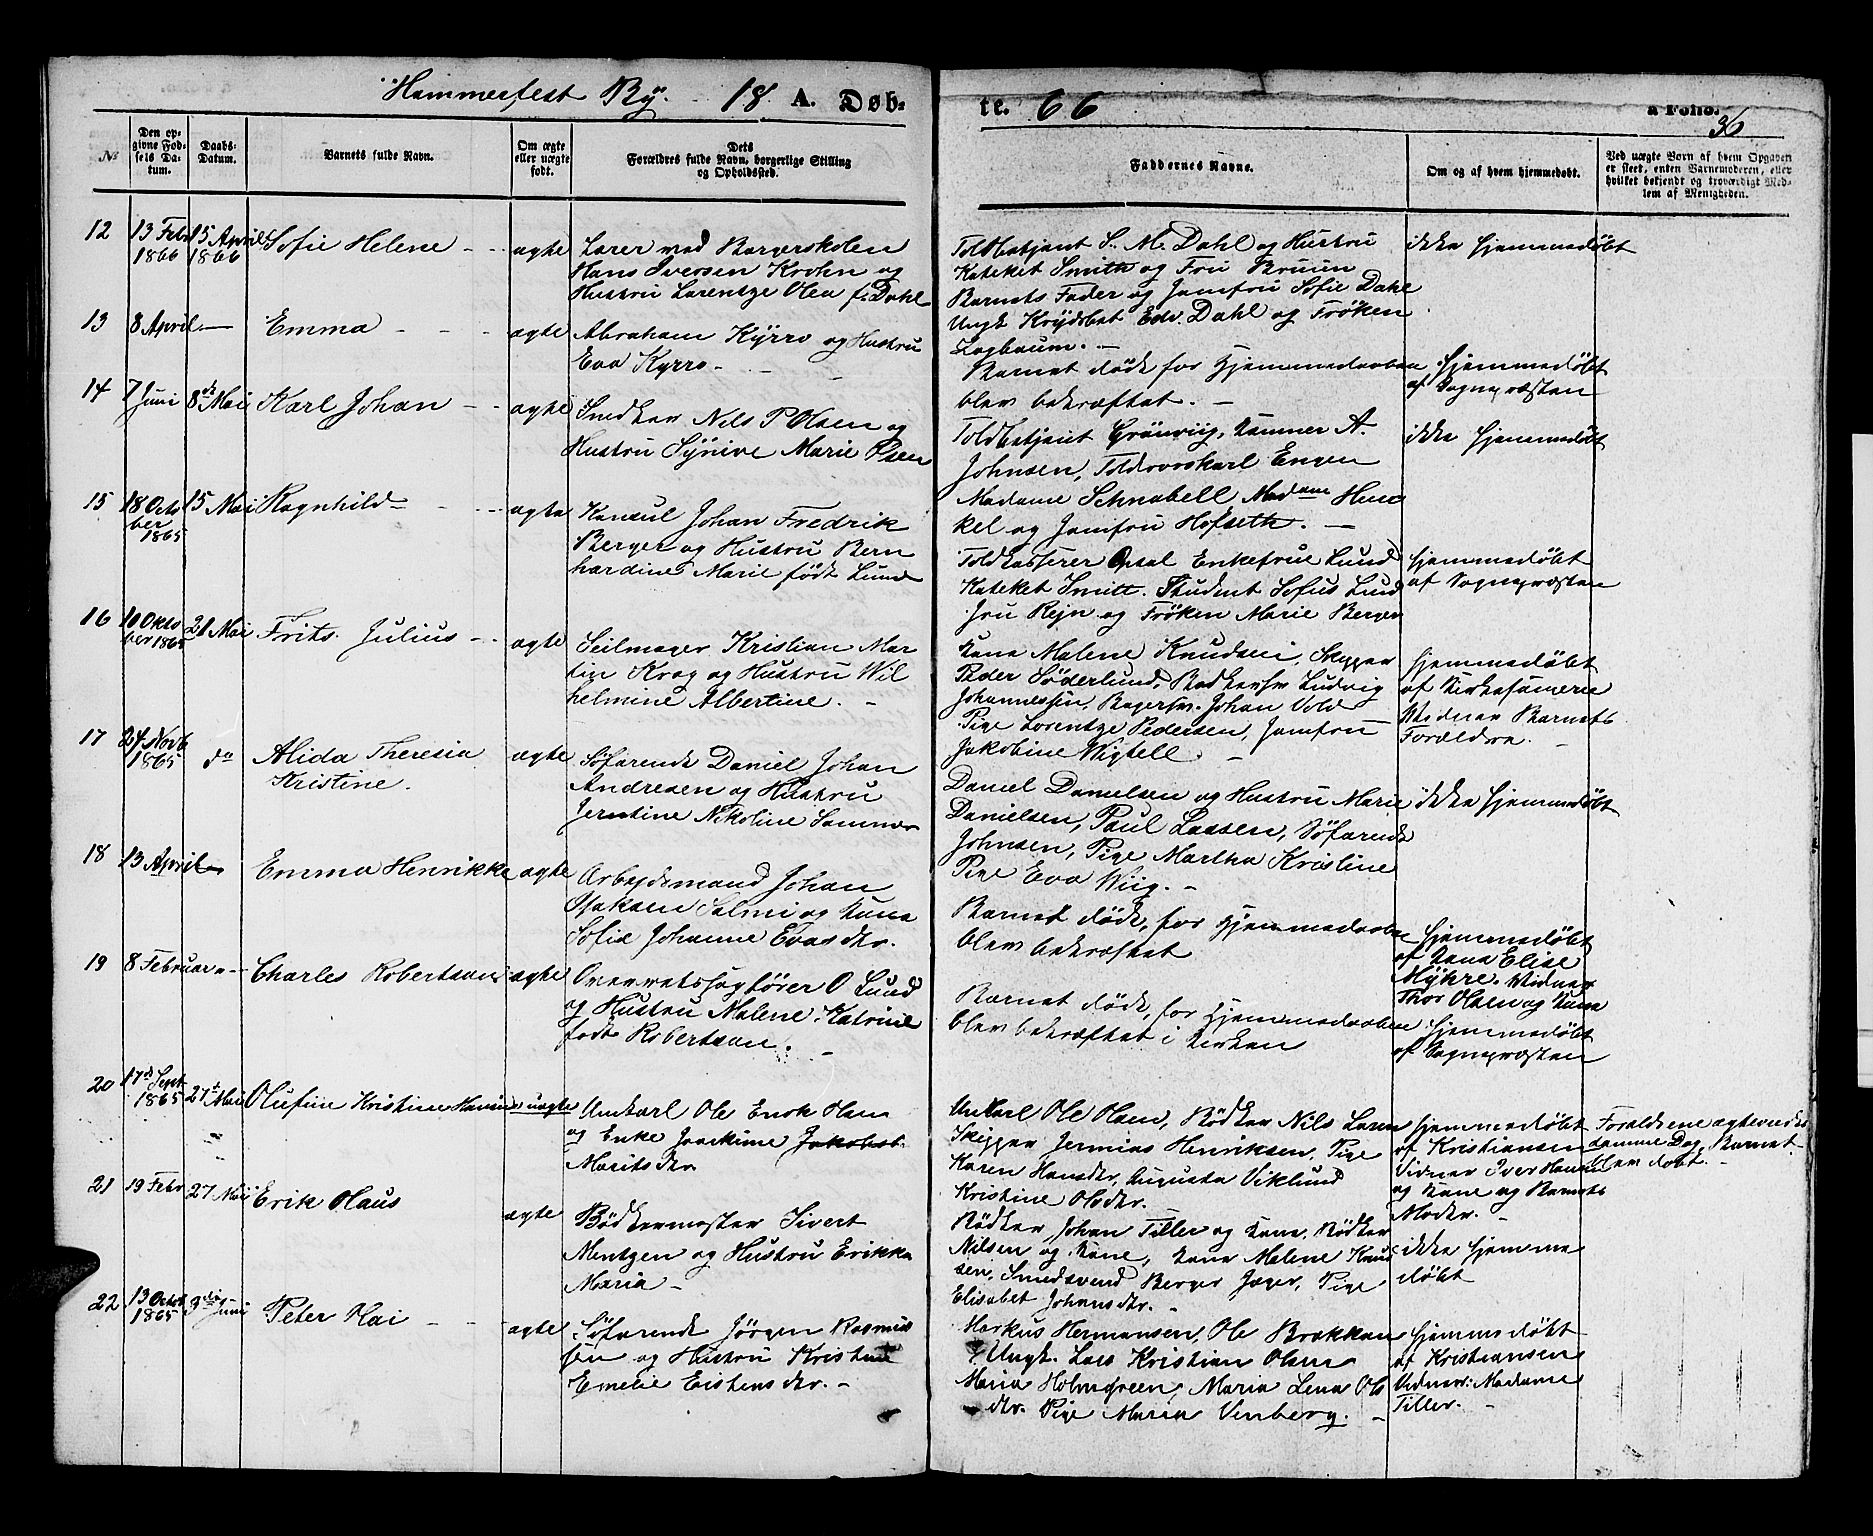 Hammerfest By. 18 A. Døb-
te. 66
a Folio.
36
№
Den op-
givne Fød-
sels Da-
tum.
Daabs-
Datum.
Barnets fulde Navn.
Om ægte
eller uægte
født.
Dets
Forældres fulde Navn, borgerlige Stilling
og Opholdssted.
Faddernes Navne.
Om og af hvem hjemmedøbt.
Ved uægte Børn af hvem Opgaven
er skeet, enten Barnemoderen, eller
hvilket bekjendt og troværdigt Med-
lem af Menigheden.
12
13 Febr
1866
15 April
1866
Sofie Helene
ægte
Lærer ved Borgerskolen
Hans Iversen Krohn og
Hustru Lorentze Olea f. Dahl
Toldbetjent S. M. Dahl og Hustru
Kateket Smith og Fru Bruun
Barnets Fader og Jomfru Sofie Dahl
Ungk Krydsbet Edv. Dahl og Frøken
ikke hjemmedøbt
13
8 April
Emma
ægte
Abraham Kyrro og Hustru
Eva Kyrro
Barnet døde før Hjemmedaaben
blev bekræftet.
hjemmedøbt
af Sognepræsten
14
7 Juni
8de Mai
Karl Johan
ægte
Snedker Nils P Olsen og
Hustru Synive Marie Olsen
Toldbetjent Grönviig, Kemner A.
Johnsen, Toldroerskarl Engen
Madame Schnabell Madam Hen
kel og Jomfru Hofseth.
ikke hjemmedøbt
15
18 Octo
ber
1865
15 Mai
Ragnhild
ægte
Konsul Johan Fredrik
Berger og Hustru Bern
hardine Marie født Lund
Toldkasserer Opsal Enkefrue Lund
Kateket Smitt. Student Sofus Lund
Fru Rejn og Frøken Marie Berger
hjemmedøbt
af Sognepræsten
16
10 Okto
ber 1865
21 Mai
Frits Julius
ægte
Seilmager Kristian Mar
tin Krog og Hustru Wil
helmine Albertine.
Kone Malene Knudsen, Skipper
Peder Söderlund, Bødkersv Ludvig
Johannessen, Bagersv. Johan Vold
Pige Lorentze Pedersen, Jomfru
Jakobine Wigtell
hjemmedøbt
af Kirkesanger
Vidner Barnets
Forældre.
17
24 Novb
1865
do
Alida Theresia
Kristine.
ægte
Søfarende Daniel Johan
Andresen og Hustru
Jerntine Nikoline Sommer
Daniel Danielsen og Hustru Marie
Danielsen, Paul Lassen, Søfarende
Johnsen, Pige Martha Kristine
Pige Eva Wiig.
ikke hjemmedøbt
18
13 April
Emma Henrikke
ægte
Arbejdsmand Johan
Isaksen Salmi og Kone
Sofie Johanne Evasdtr.
Barnet døde, før Hjemmedaaben
blev bekræftet
hjemmedøbt
af Kone Elise
Myhre. Vidner
Thor Olsen og Kone
19
8 Februar
Charles Robertson
ægte
Overretssagfører O Lund
og Hustru Malene Katrine
født Robertson.
Barnet døde, før Hjemmedaaben
blev bekræftet i Kirken
hjemmedøbt
af Sognepræsten
20
17de Sept
1865
27de Mai
Olufine Kristine
uægte
Unkarl Ole Enok Olsen
og Enke Joachime Jakobsd.
Maritsdtr.
Unkarl Ole Olsen, Bødker Nils Larsen
Skipper Jermias Henriksen, Pige
Karen Hansdtr, Augusta Viklund
Kristine Olsdtr.
hjemmedøbt
af Kristiansen
Vidner Iver Hansen
og Kone og Barnets
Moder.
Forældrene ægteviedes
samme Dag, Barnet
blev døbt.
21
19 Febr
27 Mai
Erik Olaus
ægte
Bødkermester Sivert
Mentzen og Hustru Erikka
Maria
Bødker Johan Tiller og Kone, Bødker
Nilsen og Kone, Kone Malene Knud
sen, Smedsvend Berger Jæger, Pige
Elisabet Johansdtr.
ikke hjemme
døbt
22
13 Octob
1865
3die Juni
Peter Kai
ægte
Søfarende Jørgen Rasmus
sen og Hustru Kristine
Emelie Eistensdtr.
Markus Hermansen, Ole Brækkan
Ungk. Lars Kristian Olsen
Maria Holmgreen, Maria Lena Ols
dtr. Pige Maria Vinberg.
hjemmedøbt
af Kristiansen
Vidner: Madame
Tiller.